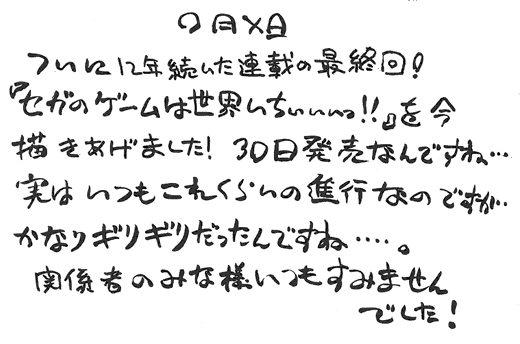 ○月×日
ついに12年続いた連載の最終回!
『セガのゲームは世界いちぃぃぃっ!!』を今
描きあげました! 30日発売なんですねぃ…
実はいつもこれくらいの進行なのですが…
かなりギリギリだったんですね…‥。
関係者のみな様いつもすみません
でした!